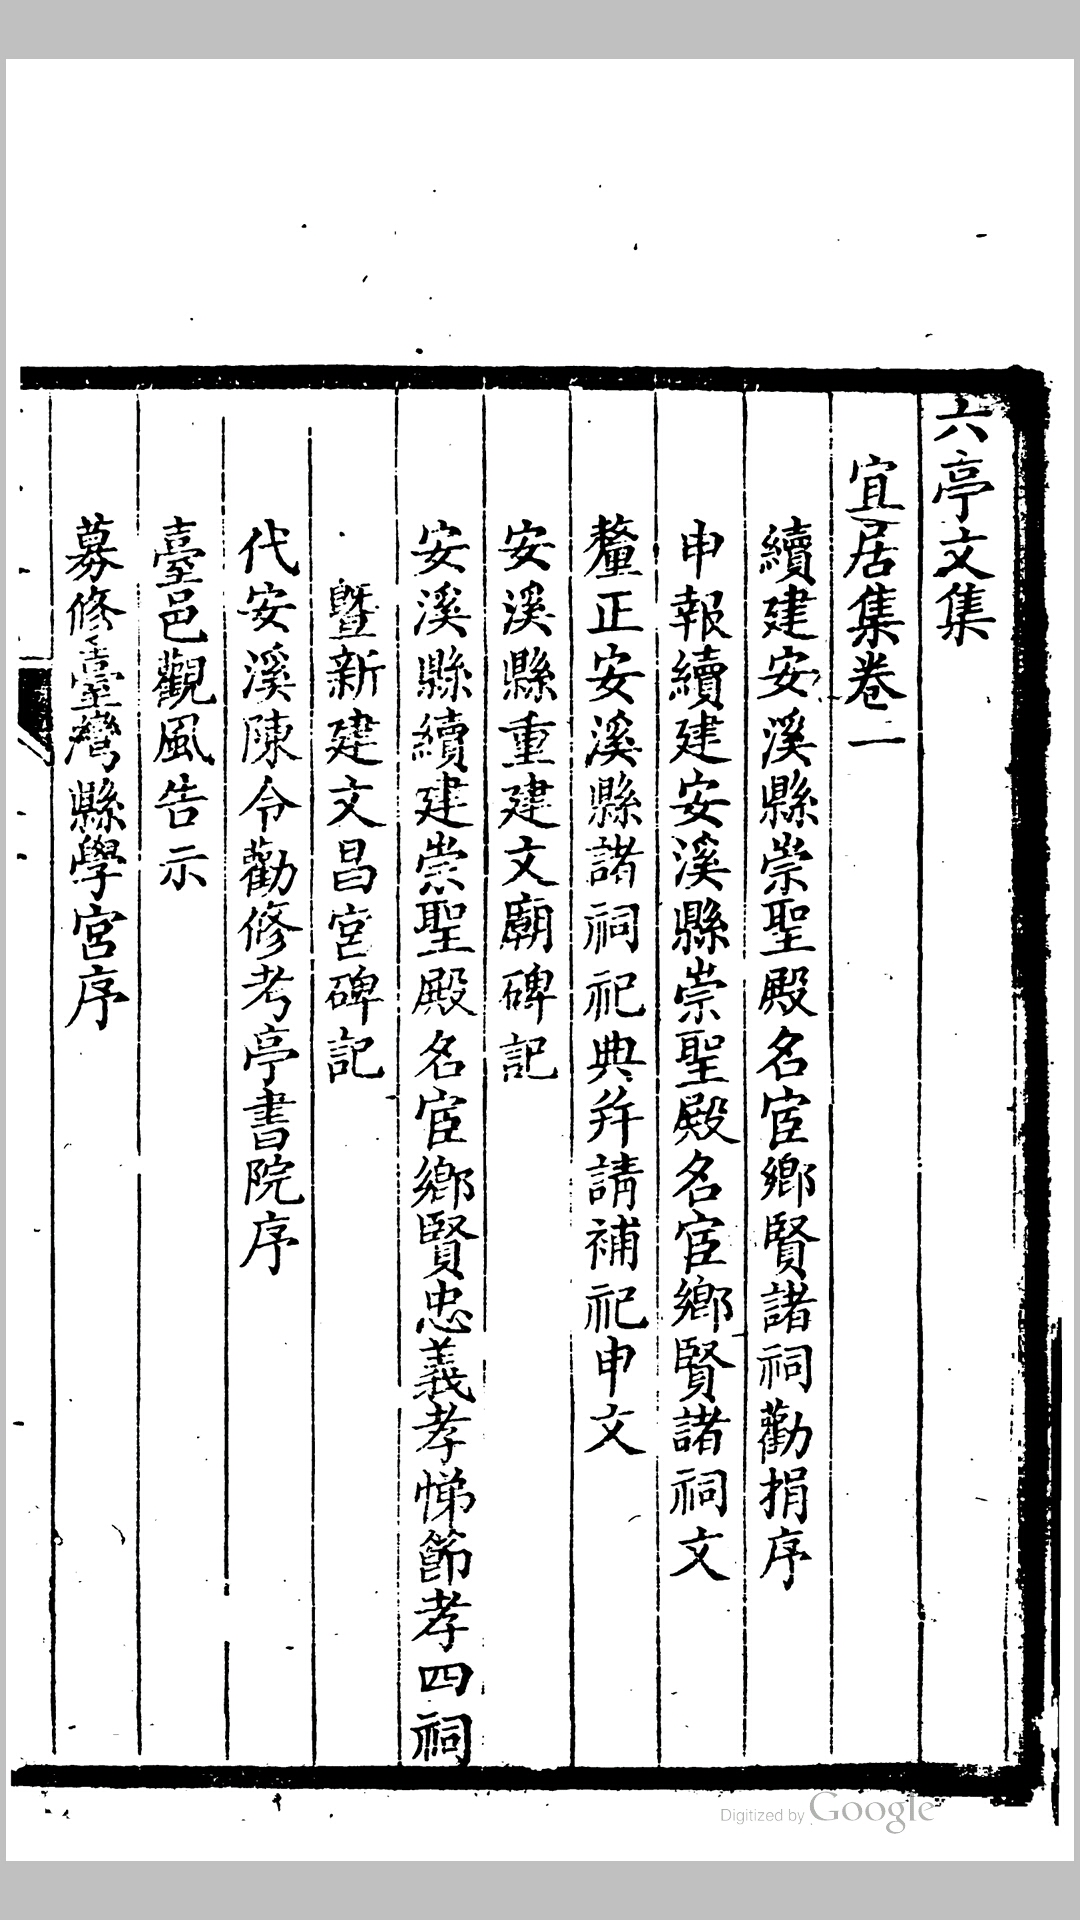 六亭文集
宜居集卷一
續建安溪縣崇聖殿名宦鄉賢諸祠勸捐序
申報續建安溪縣崇聖殿名宦鄉賢諸祠文
釐正安溪縣諸祠祀典并請補祀申文
安溪縣重建文廟碑記
安溪縣續建崇聖殿名宦鄉賢忠義孝悌節孝四祠
暨新建文昌宮碑記
代安溪陳令勸修考亭書院序
臺邑觀風告示
募修臺灣縣學宮序
Digitized by Google